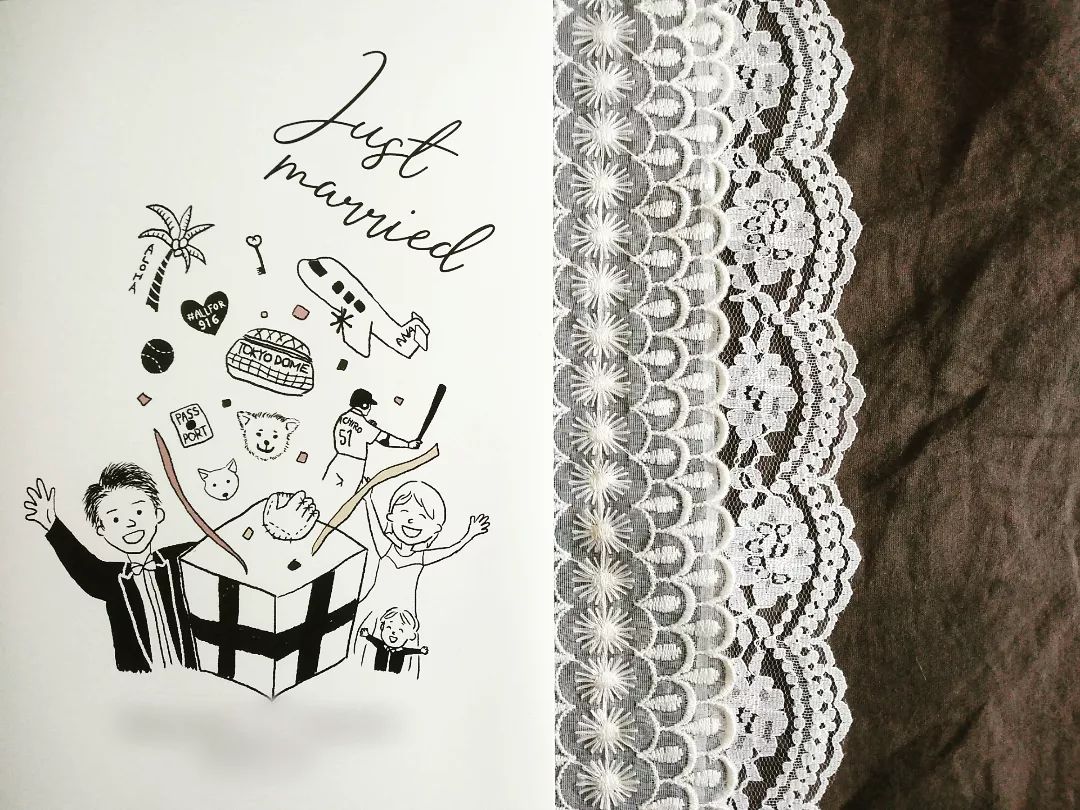 Just
married
ALOHA
#ALLFOR
916
ANA
TOKYO DOME
PASS
PORT
ICHIRO
51